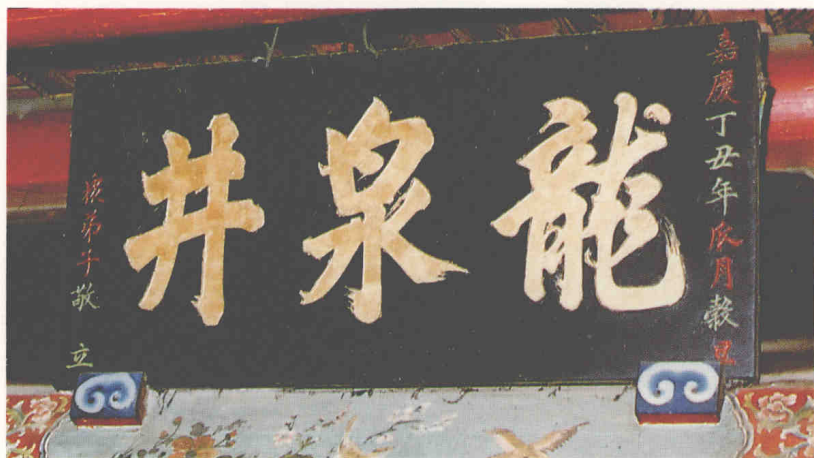 嘉慶丁丑年瓜月穀旦
龍泉井
弟子敬立